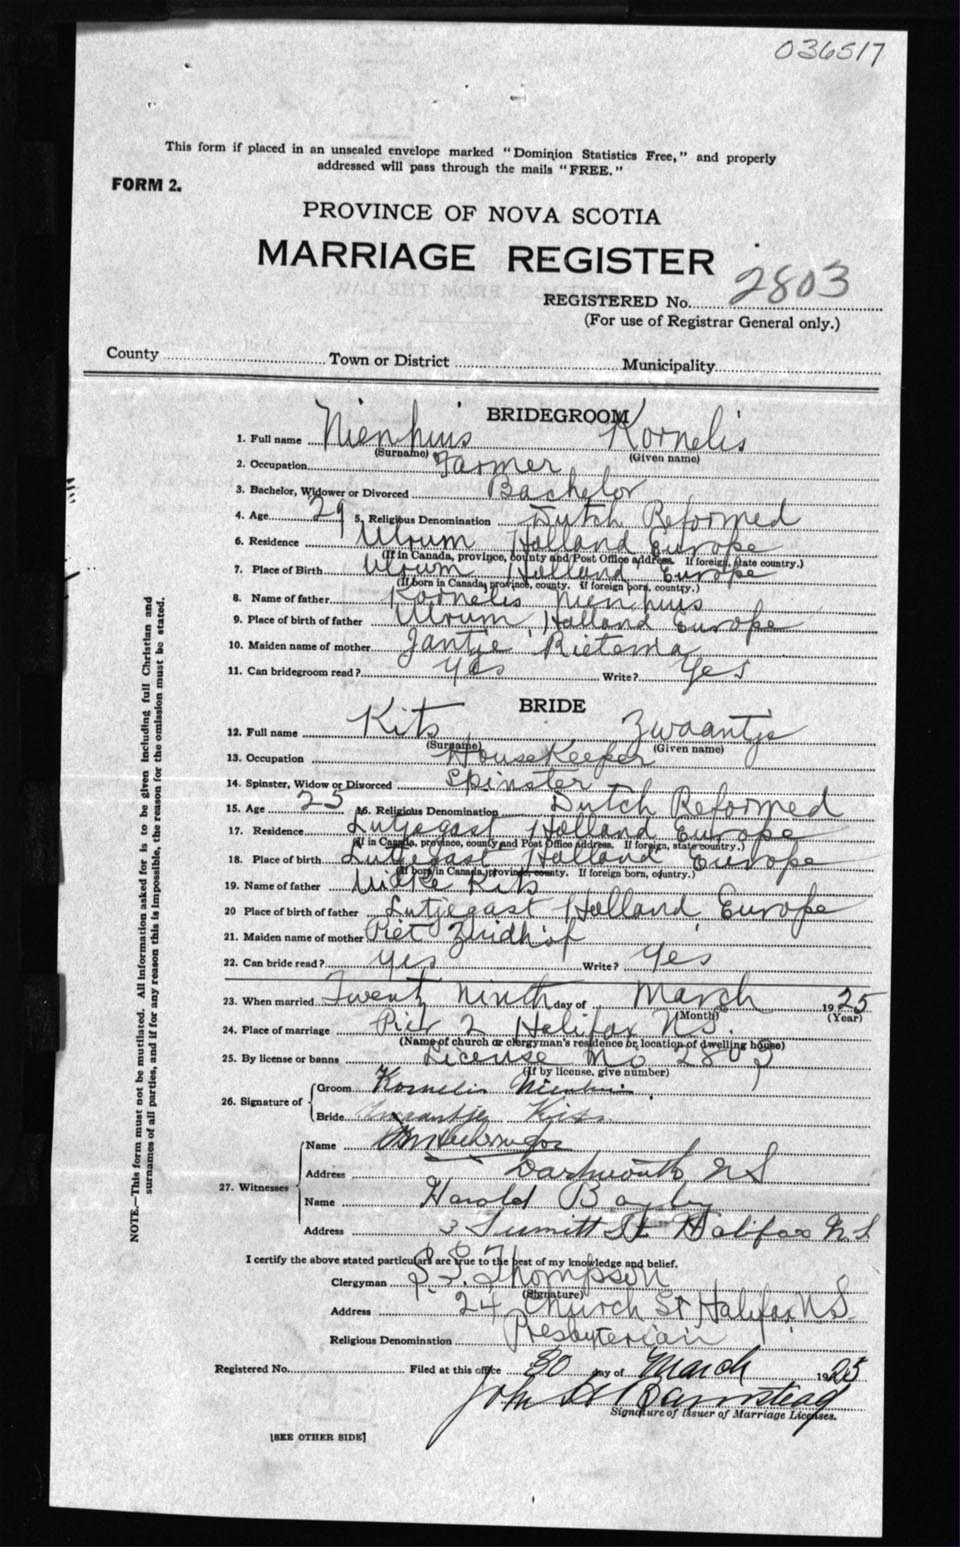 036517
This form if placed in an unsealed envelope marked "Dominion Statistics Free," and properly
addressed will pass through the mails "FREE."
FORM 2.
PROVINCE OF NOVA SCOTIA
MARRIAGE REGISTER
REGISTERED No. 2803
(For use of Registrar General only.)
County Town or District Municipality
BRIDEGROOM
1. Full name Nienhuis Kornelis
(Surname) (Given name)
2. Occupation Farmer
3. Bachelor, Widower or Divorced Bachelor
4. Age 29 5. Religious Denomination Dutch Reformed
6. Residence Ulrum Holland Europe
(If in Canada, province, county and Post Office address. If foreign, state country.)
7. Place of Birth Ulrum Holland Europe
(If born in Canada, province, county. If foreign born, country.)
8. Name of father Kornelis Nienhuis
9. Place of birth of father Ulrum, Holland Europe
10. Maiden name of mother Jantje Rietema
11. Can bridegroom read? Yes Write? Yes
BRIDE
12. Full name Kits Zwaantje
(Surname) (Given name)
13. Occupation HouseKeeper
14. Spinster, Widow or Divorced Spinster
15. Age 25 16. Religious Denomination Dutch Reformed
17. Residence Lutjegast Holland Europe
(If in Canada, province, county and Post Office address. If foreign, state country.)
18. Place of birth Lutjegast Holland Europe
(If born in Canada, province, county. If foreign born, country.)
19. Name of father Kits
20 Place of birth of father Lutjegast Holland Europe
21. Maiden name of mother Piet
22. Can bride read? Yes Write? Yes
23. When married Twenty ninth day of March 1925
(Month) (Year)
24. Place of marriage Pier 2 Halifax N.S.
(Name of church or clergyman's residence or location of dwelling house)
25. By license or banns License No 2803
(If by license, give number)
26. Signature of Groom Kornelis Nienhuis
Bride Zwaantje Kits
27. Witnesses Name
Address Dartmouth N S
Name Harold
Address 3 Summitt St Halifax N.S
I certify the above stated particulars are true to the best of my knowledge and belief.
Clergyman Thompson
(Signature)
Address 24 Church St Halifax N.S.
Religious Denomination Presbyterian
Registered No. Filed at this office 30 day of March 1925
John H Barnstead
Signature of Issuer of Marriage Licenses.
[SEE OTHER SIDE]
NOTE.—This form must not be mutilated. All information asked for is to be given including full Christian and
surnames of all parties, and if for any reason this is impossible, the reason for the omission must be stated.